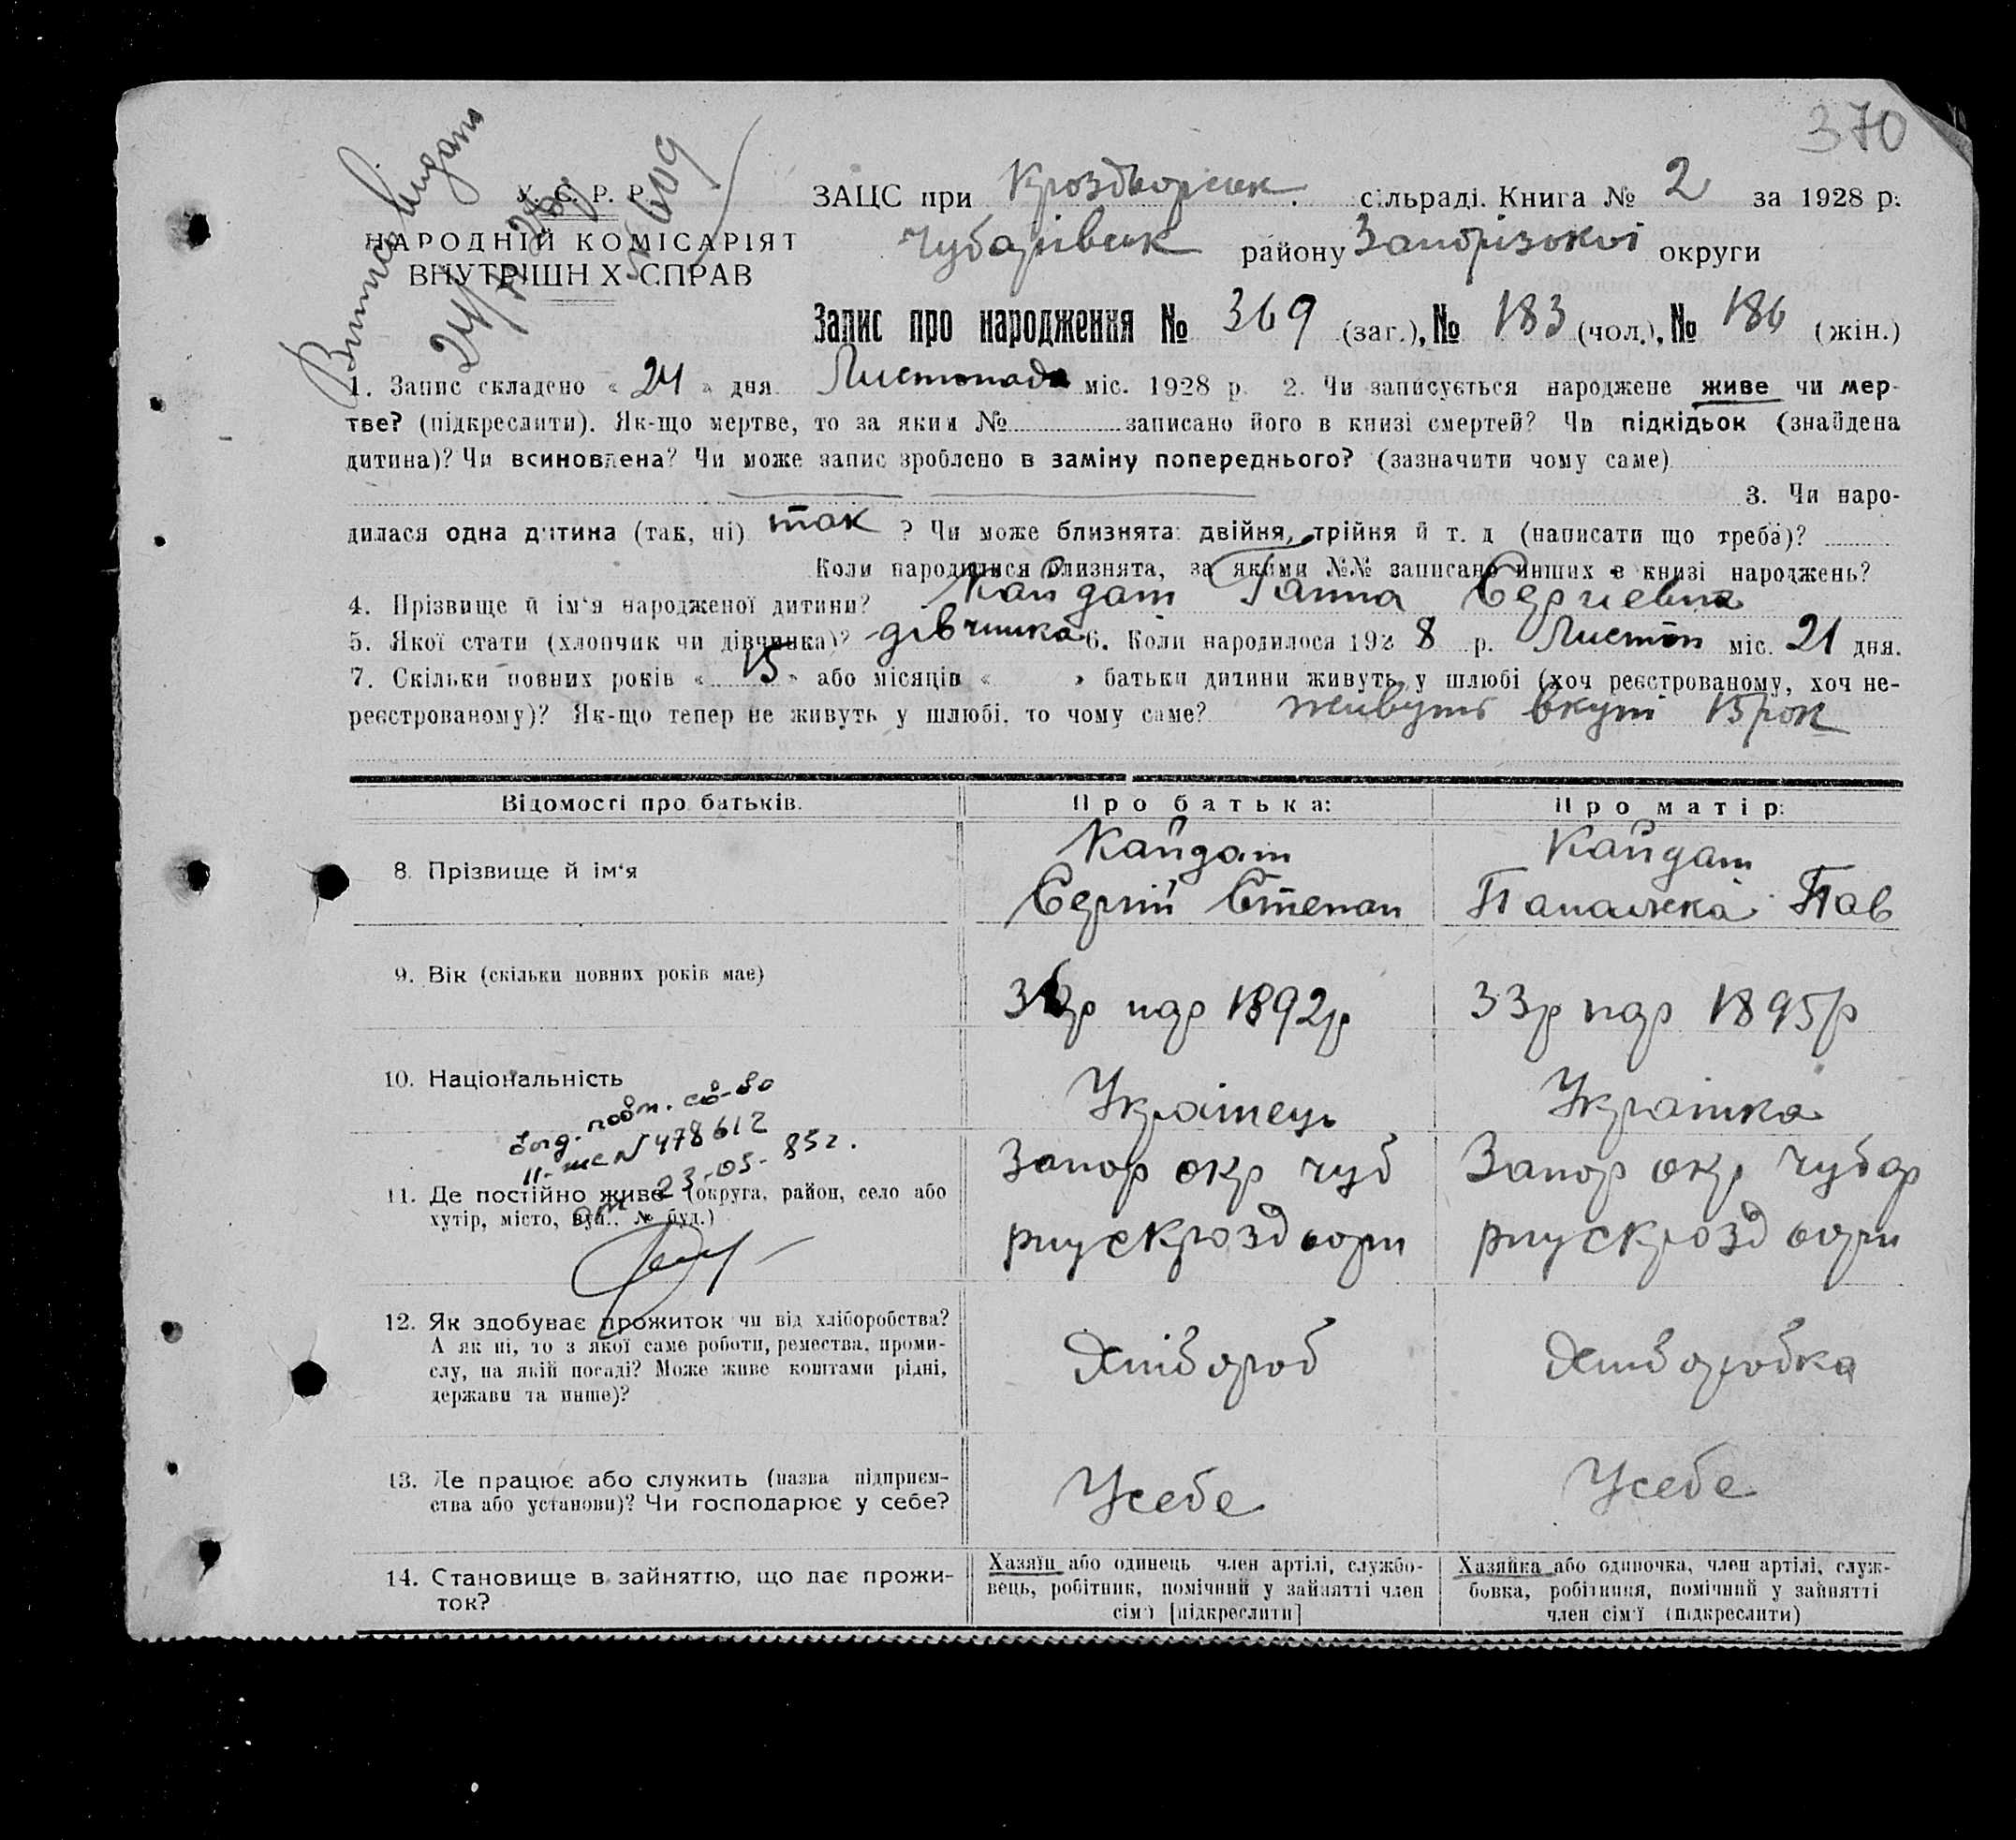 370
Виписа видана
24/XI 28р
№ 609
У. С. Р. Р.
НАРОДНІЙ КОМІСАРІЯТ
ВНУТРІШН Х СПРАВ
ЗАЦС при Кроздворськ. сільраді. Книга № 2 за 1928 р.
Чубарівськ району Запорізької округи
Запис про народження № 369 (заг.), № 183 (чол.), № 186 (жін.)
1. Запис складено « 24 » дня Листопада міс. 1928 р. 2. Чи записується народжене живе чи мер-
тве? (підкреслити). Як-що мертве, то за яким № записано його в книзі смертей? Чи підкідьок (знайдена
дитина)? Чи всиновлена? Чи може запис зроблено в заміну попереднього? (зазначити чому саме)
3. Чи наро-
дилася одна дитина (так, ні) так ? Чи може близнята: двійня, трійня й т. д (написати що треба)?
Коли народилися близнята, за якими №№ записано инших в книзі народжень?
4. Прізвище й ім'я народженої дитини? Кайдат Ганна Сергиевна
5. Якої стати (хлопчик чи дівчинка)? дівчинка 6. Коли народилося 192 8 р. Листоп міс. 21 дня.
7. Скільки повних років « 15 » або місяців « » батьки дитини живуть у шлюбі (хоч реєстрованому, хоч не-
реєстрованому)? Як-що тепер не живуть у шлюбі, то чому саме? живуть вкупі 15 рок
Відомості про батьків. Про батька: Про матір:
8. Прізвище й ім'я
Кайдат
Сергій Степан
Кайдат
Палажка Пав
9. Вік (скільки повних років має)
36р нар 1892р
33р нар 1895р
10. Національність
Українець
Українка
повт. св-во
II-ЖС № 478612
от 23-05-85г.
11. Де постійно живе (округа, район, село або
хутір, місто, вул., № буд.)
Запор окр Чуб
рну с Кроздвори
Запор окр Чубар
рну с Кроздвори
12. Як здобуває прожиток чи від хліборобства?
А як ні, то з якої саме роботи, ремества, проми-
слу, на якій посаді? Може живе коштами рідні,
держави та инше)?
Хлібороб
Хлиборобка
13. Де працює або служить (назва підприєм-
ства або установи)? Чи господарює у себе?
Усебе
Усебе
14. Становище в зайняттю, що дає прожи-
ток?
Хазяїн або одинець член артілі, службо-
вець, робітник, помічний у зайнятті член
сім'ї [підкреслити]
Хазяйка або одиночка, член артілі, служ-
бовка, робітниця, помічний у зайнятті
член сім'ї (підкреслити)